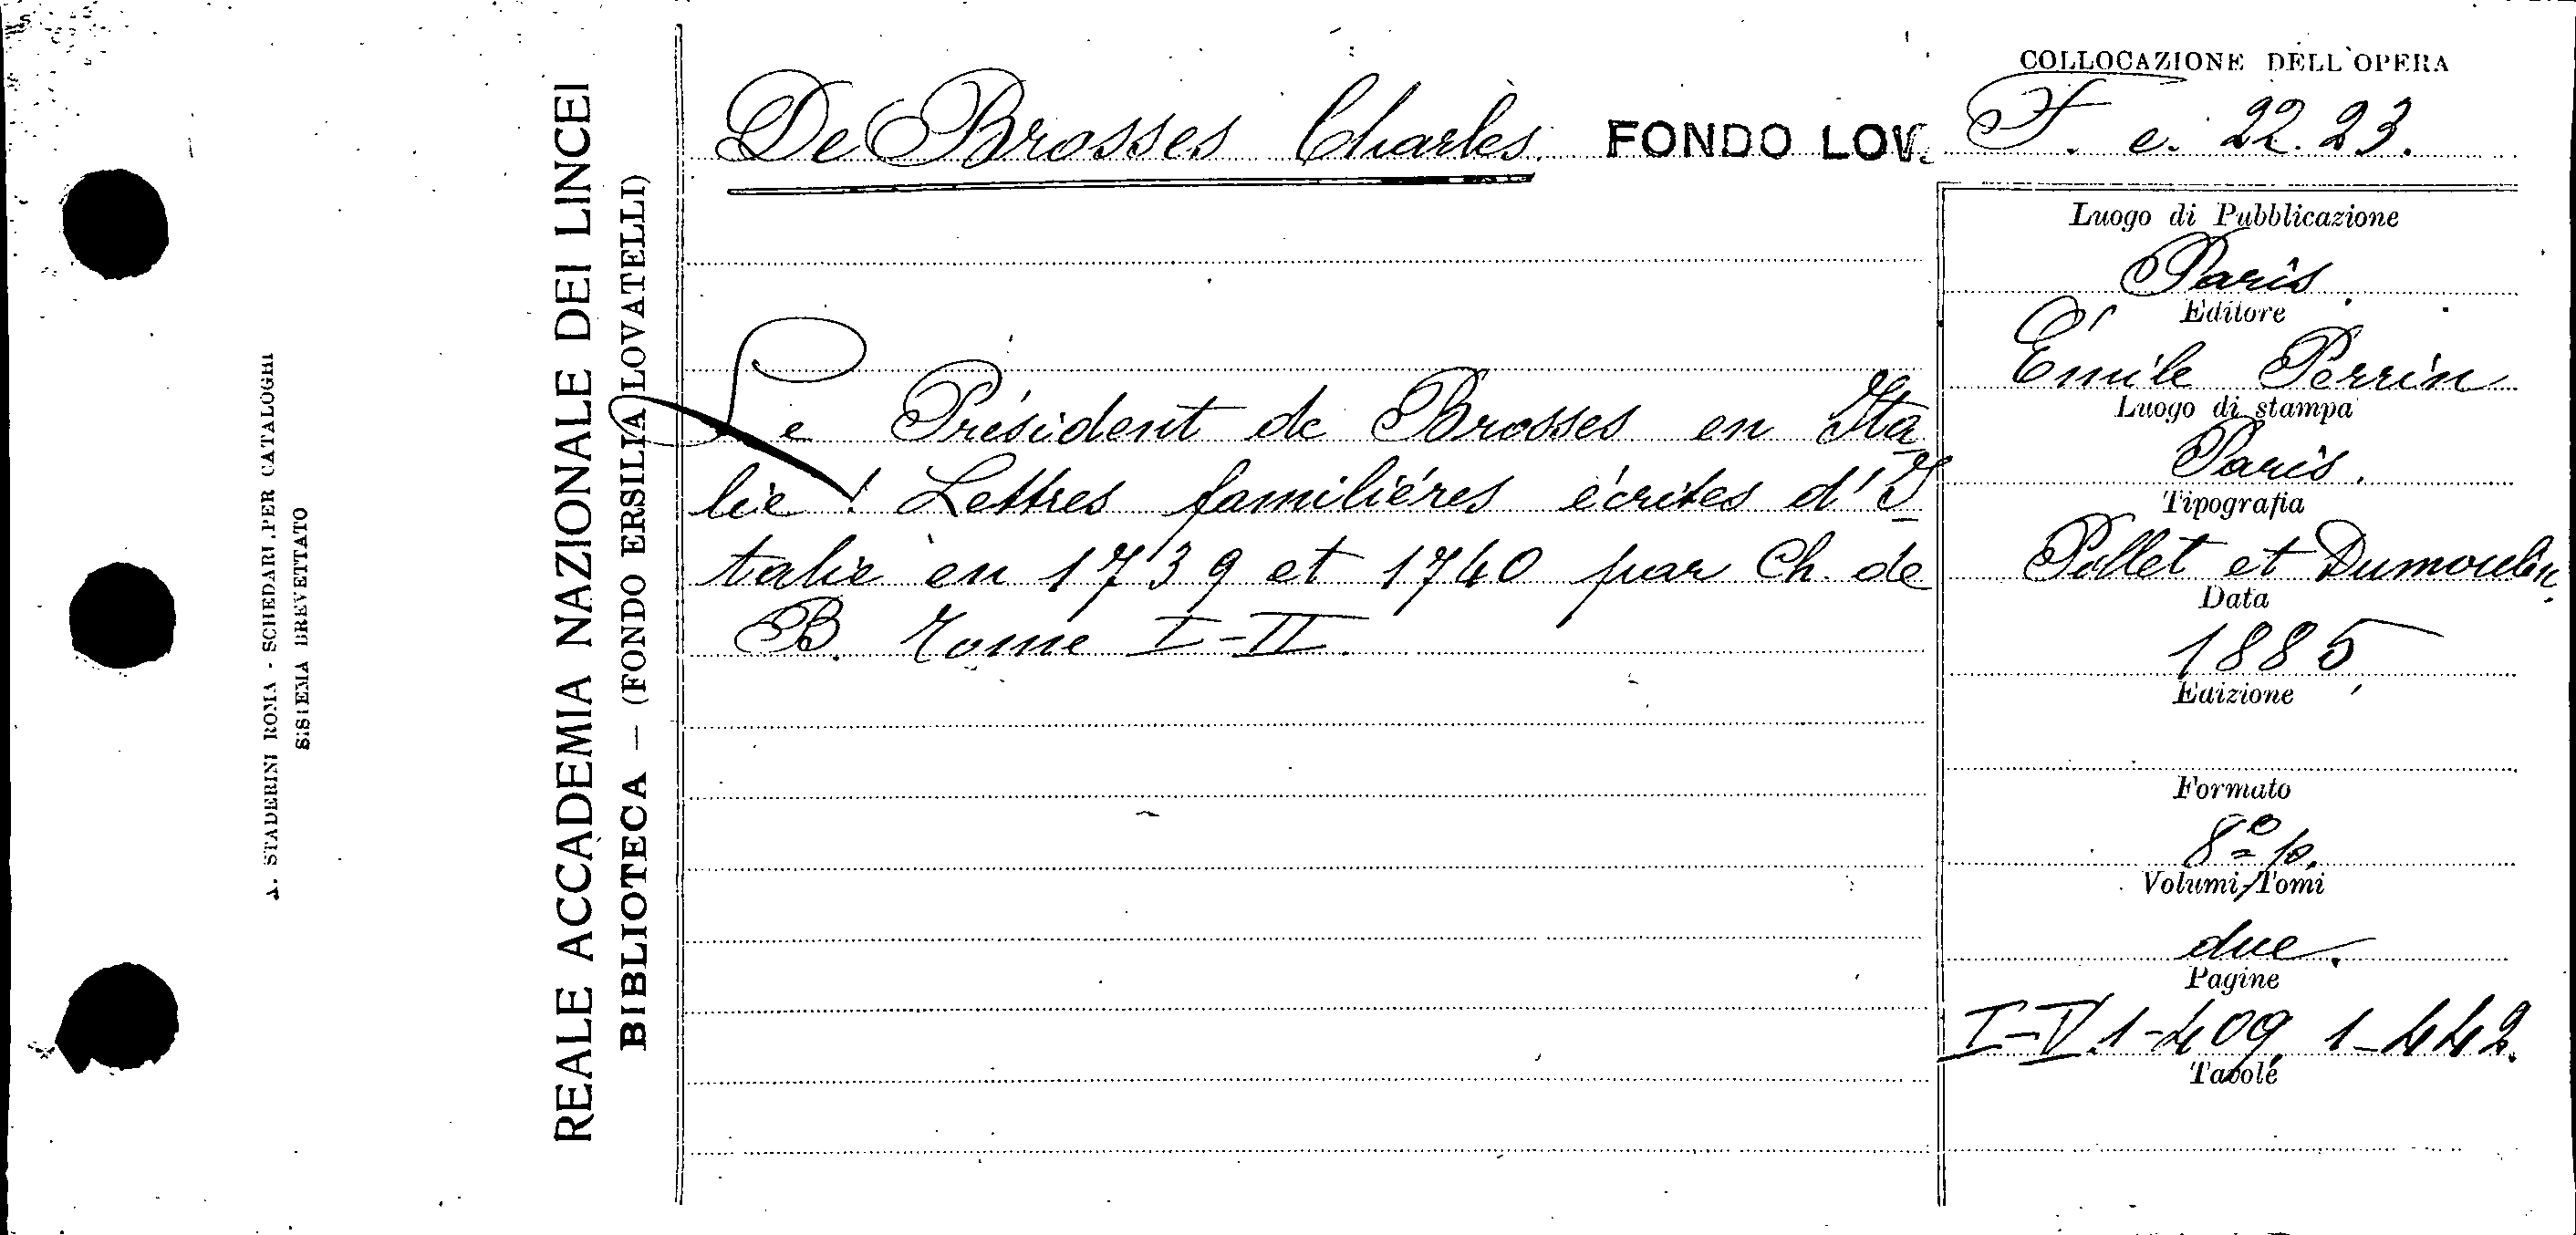 A. STADERINI ROMA - SCHEDARI PER CATALOGHI
SISTEMA BREVETTATO
REALE ACCADEMIA NAZIONALE DEI LINCEI
BIBLIOTECA — (FONDO ERSILIA LOVATELLI)
De Brosses Charles. FONDO LOV.
Le Président de Brosses en Ita
lie ! Lettres familiéres écrites d'I
talie en 1739 et 1740 par Ch. de
B. Tome I-II.
COLLOCAZIONE DELL'OPERA
F. e. 22. 23.
Luogo di Pubblicazione
Paris.
Editore
Émile Perrin
Luogo di stampa
Paris.
Tipografia
Pillet et Dumoulin
Data
1885
Edizione
Formato
8º p.
Volumi/Tomi
due.
Pagine
I-V. 1-409, 1-442.
Tavole